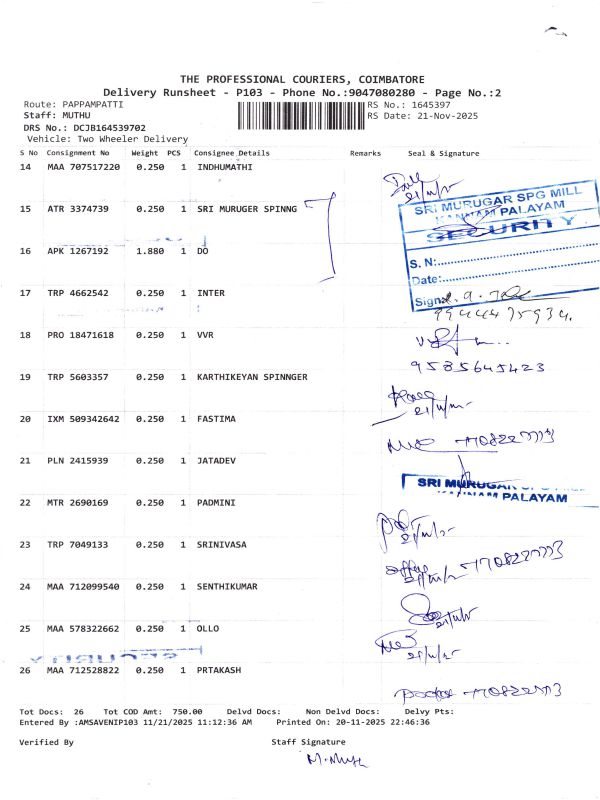 THE PROFESSIONAL COURIERS, COIMBATORE
Delivery Runsheet - P103 - Phone No.:9047080280 - Page No.:2
Route: PAPPAMPATTI RS No.: 1645397
Staff: MUTHU RS Date: 21-Nov-2025
DRS No.: DCJB164539702
Vehicle: Two Wheeler Delivery
S No Consignment No Weight PCS Consignee Details Remarks Seal & Signature
14 MAA 707517220 0.250 1 INDHUMATHI
21/11/25
15 ATR 3374739 0.250 1 SRI MURUGER SPINNG
SRI MURUGAR SPG MILL
KANNAM PALAYAM
SECURITY
16 APK 1267192 1.880 1 DO
S. N:
Date:
17 TRP 4662542 0.250 1 INTER
Sign
9944475934.
18 PRO 18471618 0.250 1 VVR
9585645423
19 TRP 5603357 0.250 1 KARTHIKEYAN SPINNGER
20 IXM 509342642 0.250 1 FASTIMA
21 PLN 2415939 0.250 1 JATADEV
SRI MURUGAR SPG MILL
KANNAM PALAYAM
22 MTR 2690169 0.250 1 PADMINI
23 TRP 7049133 0.250 1 SRINIVASA
24 MAA 712099540 0.250 1 SENTHIKUMAR
25 MAA 578322662 0.250 1 OLLO
SECURITY
26 MAA 712528822 0.250 1 PRTAKASH
Tot Docs: 26 Tot COD Amt: 750.00 Delvd Docs: Non Delvd Docs: Delvy Pts:
Entered By :AMSAVENIP103 11/21/2025 11:12:36 AM Printed On: 20-11-2025 22:46:36
Verified By Staff Signature
M. Muth